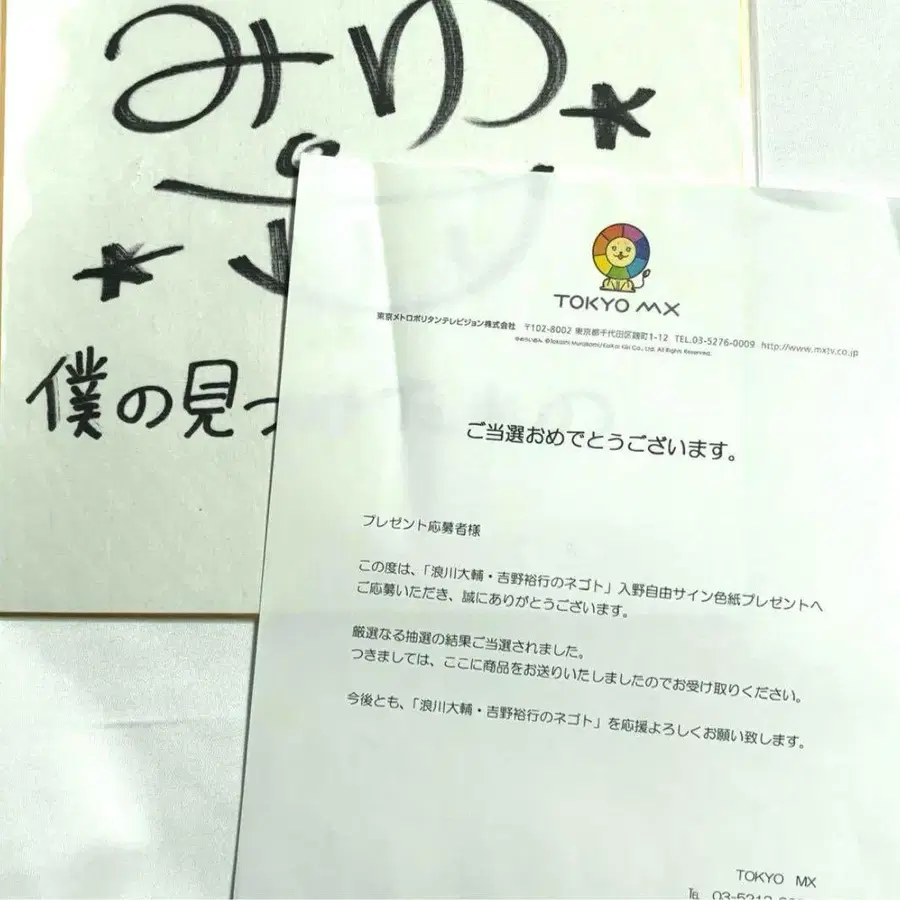 みゆ
僕の見つ
TOKYO MX
東京メトロポリタンテレビジョン株式会社 〒102-8002 東京都千代田区麹町1-12 TEL.03-5276-0009 http://www.mxtv.co.jp
ゆめらいおん ©Takashi Murakami/Kaikai Kiki Co., Ltd. All Rights Reserved.
ご当選おめでとうございます。
プレゼント応募者様
この度は、「浪川大輔・吉野裕行のネゴト」入野自由サイン色紙プレゼントへ
ご応募いただき、誠にありがとうございます。
厳選なる抽選の結果ご当選されました。
つきましては、ここに商品をお送りいたしましたのでお受け取りください。
今後とも、「浪川大輔・吉野裕行のネゴト」を応援よろしくお願い致します。
TOKYO MX
℡ 03-5213